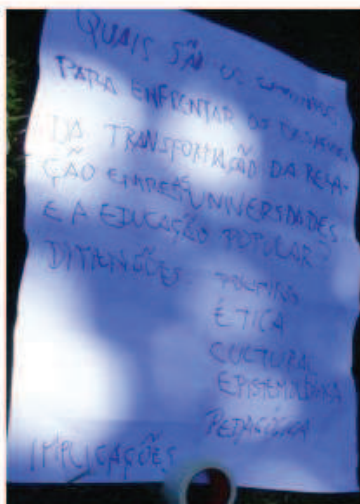 QUAIS SÃO OS CAMINHOS
PARA ENFRENTAR OS DESAFIOS
DA TRANSFORMAÇÃO DA RELA-
ÇÃO ENTRE AS UNIVERSIDADES
E A EDUCAÇÃO POPULAR?
DIMENSÕES: POLÍTICA
ÉTICA
CULTURAL
EPISTEMOLÓGICA
PEDAGÓGICA
IMPLICAÇÕES